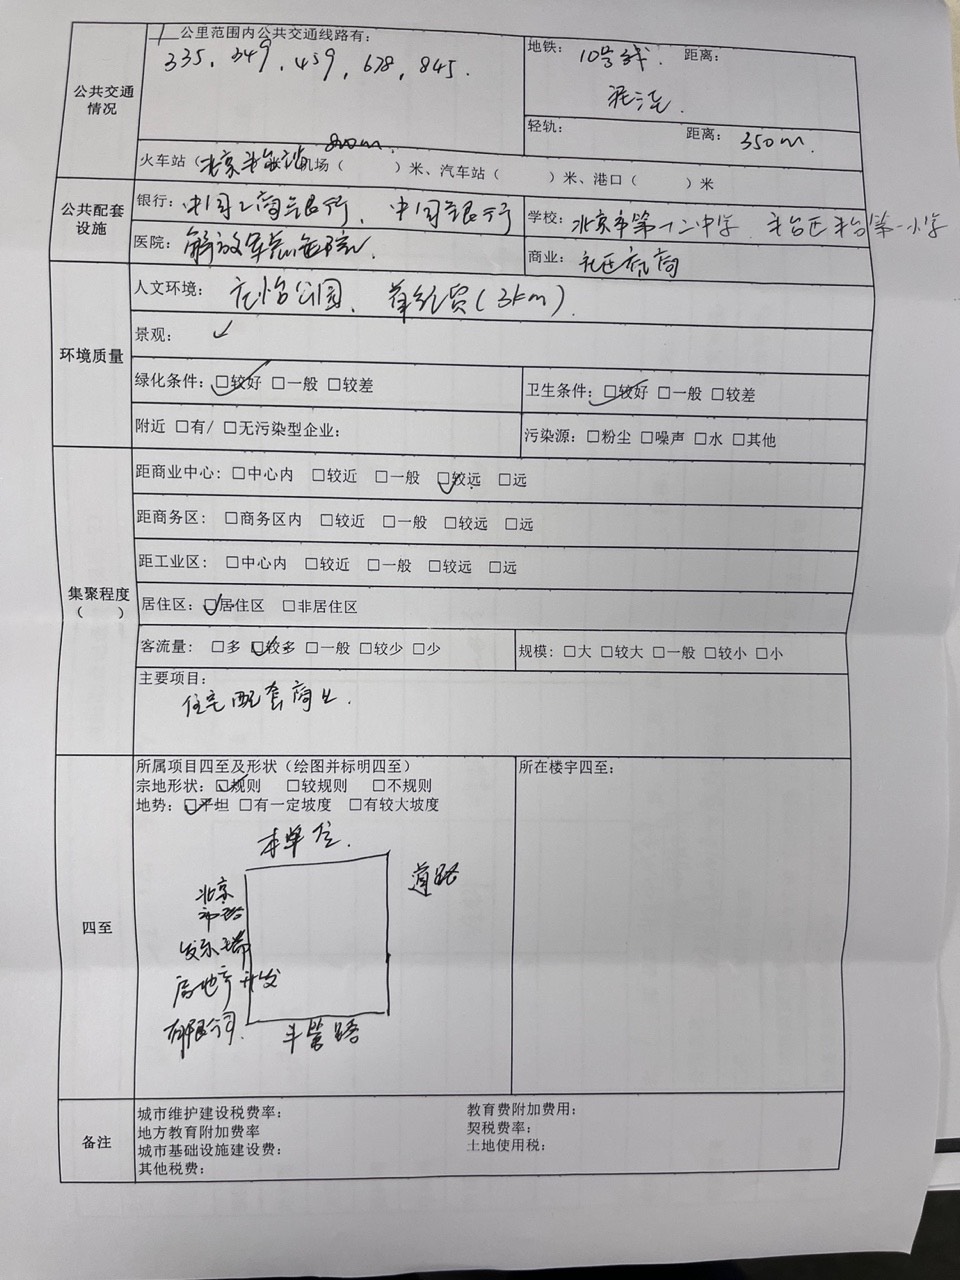 1 公里范围内公共交通线路有:
335, 349, 459, 678, 845.
地铁: 10号线. 距离:
泥洼.
公共交通情况
轻轨: 距离: 350m.
800m.
火车站(北京丰台站 机场( )米、汽车站( )米、港口( )米
公共配套设施
银行: 中国工商银行、中国银行
学校: 北京市第十二中学. 丰台区丰台第一小学
医院: 解放军总医院
商业: 社区底商
环境质量
人文环境: 花园、首经贸(3km).
景观: ✓
绿化条件: ☑较好 □一般 □较差
卫生条件: ☑较好 □一般 □较差
附近 □有/ □无污染型企业:
污染源: □粉尘 □噪声 □水 □其他
集聚程度
( )
距商业中心: □中心内 □较近 □一般 ☑较远 □远
距商务区: □商务区内 □较近 □一般 □较远 □远
距工业区: □中心内 □较近 □一般 □较远 □远
居住区: ☑居住区 □非居住区
客流量: □多 ☑较多 □一般 □较少 □少
规模: □大 □较大 □一般 □较小 □小
主要项目:
住宅配套商业.
四至
所属项目四至及形状(绘图并标明四至)
宗地形状: ☑规则 □较规则 □不规则
地势: ☑平坦 □有一定坡度 □有较大坡度
所在楼宇四至:
本单位.
道路
北京
房地产开发
有限公司.
丰管路
备注
城市维护建设税费率:
教育费附加费用:
地方教育附加费率
契税费率:
城市基础设施建设费:
土地使用税:
其他税费: